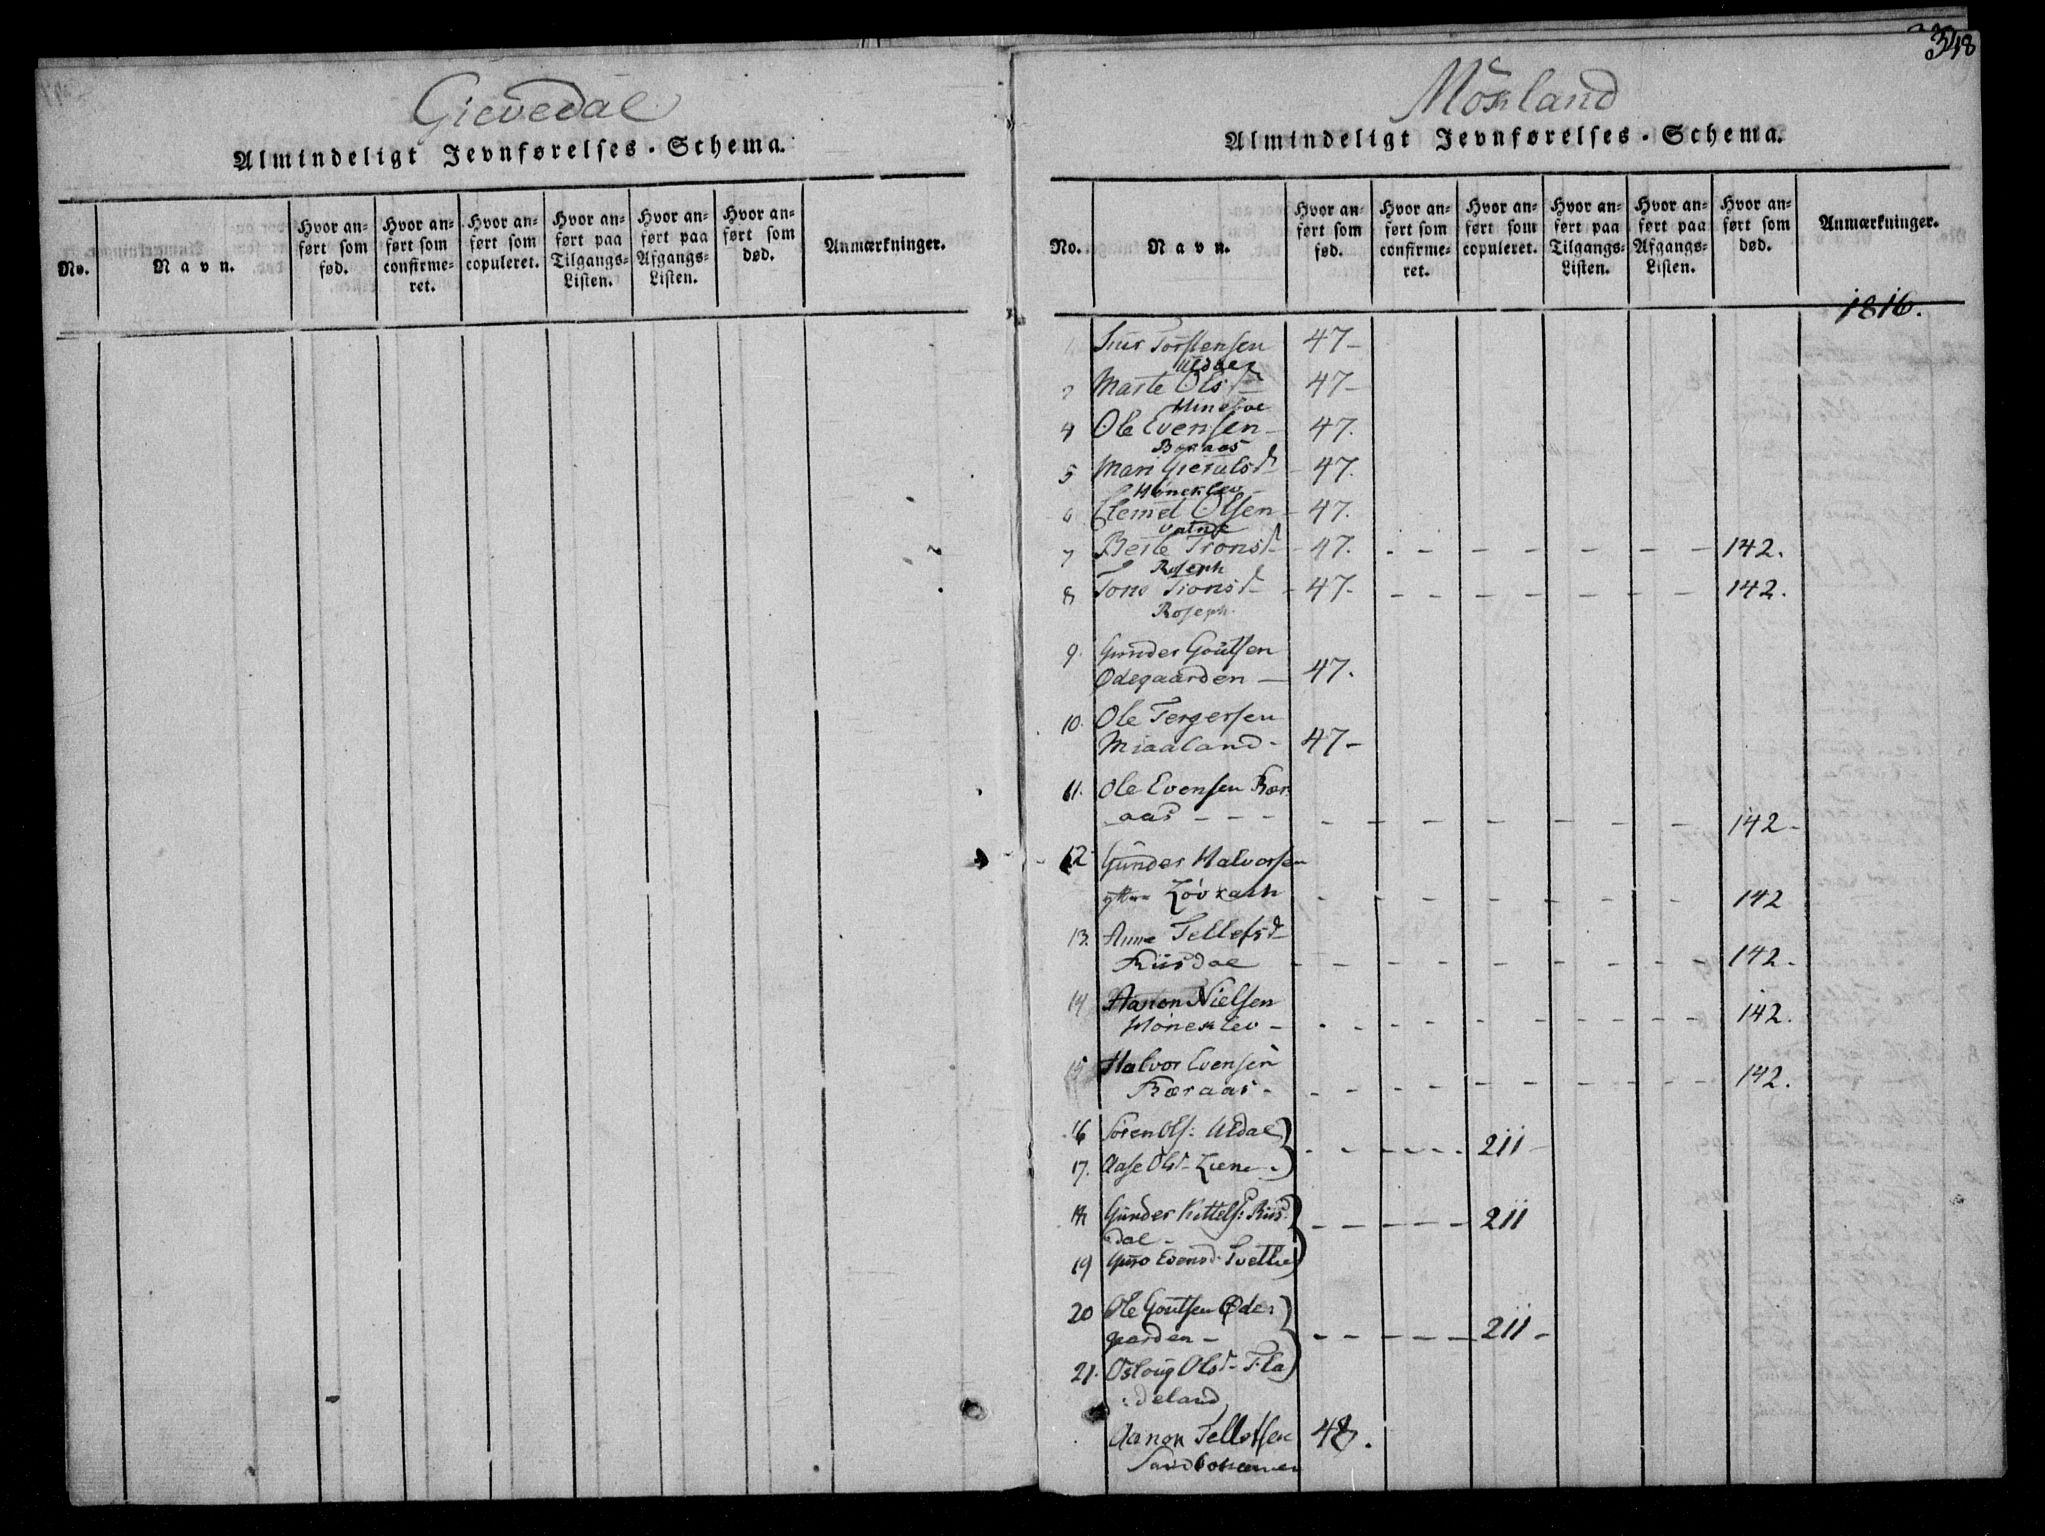 Gievedal
Almindeligt Jevnførelses-Schema.
No.
Navn.
Hvor anført som fød.
Hvor anført som confirmeret.
Hvor anført som copuleret.
Hvor anført paa Tilgangs-Listen.
Hvor anført paa Afgangs-Listen.
Hvor anført som død.
Anmærkninger.
348
Mösland
Almindeligt Jevnførelses-Schema.
No.
Navn.
Hvor anført som fød.
Hvor anført som confirmeret.
Hvor anført som copuleret.
Hvor anført paa Tilgangs-Listen.
Hvor anført paa Afgangs-Listen.
Hvor anført som død.
Anmærkninger.
1816.
Torstensen 47-
Uldal
Marte Olsd 47-
4 Ole Evensen - 47.
Beraas
5 Mari Gierulsd - 47.
Høneklev
6 Clemet Olsen - 47.
Vatne
7 Berte Tronsd - 47. - - - - - - 142.
Roseph
8 Tone Tronsd - 47- - - - - - - 142.
Roseph.
9. Gunder Goutsen
Ødegaarden - 47.
10. Ole Tergersen
Miaaland - 47-
11. Ole Evensen Bær
aas - - - - - - - - - 142-
12 Gunder Halvorsen
yttre Løvrath - - - - - - 142
13. Anne Tellefsd
Riisdal - - - - - - - 142-
14 Aanon Nielsen
Høneklev - - - - - - - 142.
15 Halvor Evensen
Bæraas - - - - - - - - 142.
16 Søren Ols: Uldal) - - - - 211-
17. Aase Olsd - Liene -)
18 Gunder Kittels: Riis) - - - - 211
dal -
19 Guro Evensd: Tvetthe)
20 Ole Goutsen Øde:)
gaarden - - - - - - 211-
21. Osloug Olsd - Fla)
:deland
Aanon Tellefsen 48.